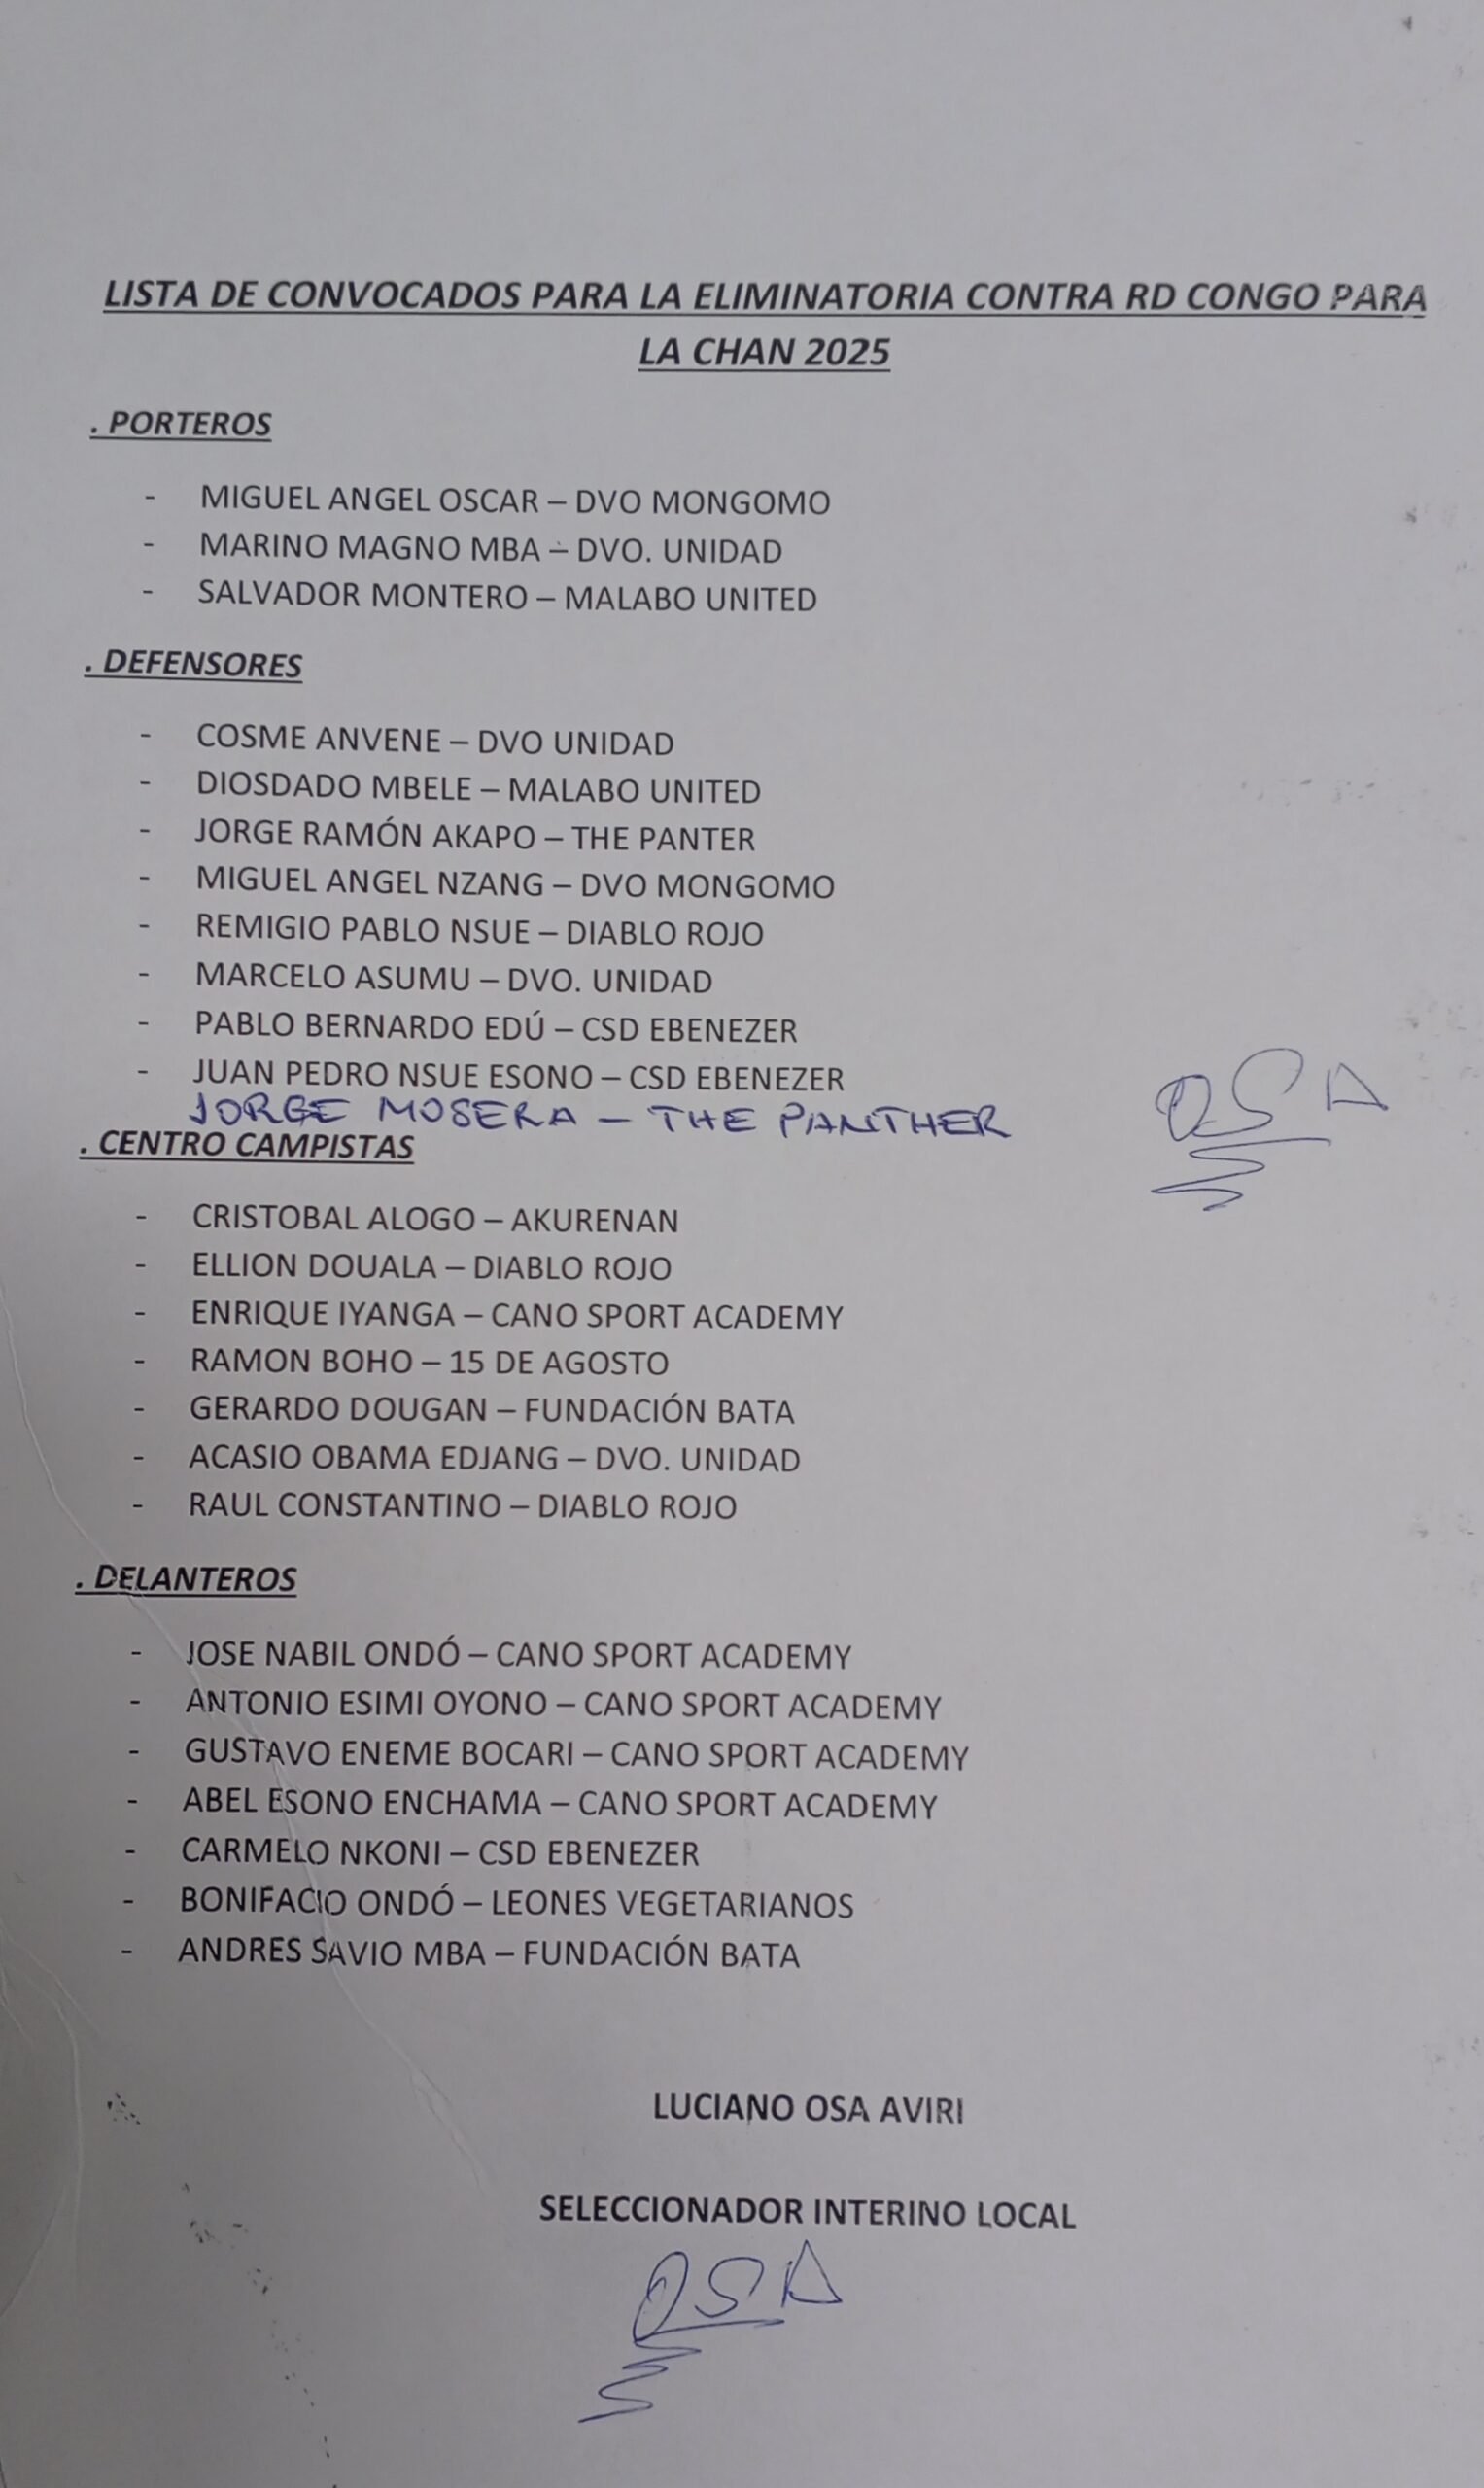 LISTA DE CONVOCADOS PARA LA ELIMINATORIA CONTRA RD CONGO PARA
LA CHAN 2025
. PORTEROS
- MIGUEL ANGEL OSCAR – DVO MONGOMO
- MARINO MAGNO MBA – DVO. UNIDAD
- SALVADOR MONTERO – MALABO UNITED
. DEFENSORES
- COSME ANVENE – DVO UNIDAD
- DIOSDADO MBELE – MALABO UNITED
- JORGE RAMÓN AKAPO – THE PANTER
- MIGUEL ANGEL NZANG – DVO MONGOMO
- REMIGIO PABLO NSUE – DIABLO ROJO
- MARCELO ASUMU – DVO. UNIDAD
- PABLO BERNARDO EDÚ – CSD EBENEZER
- JUAN PEDRO NSUE ESONO – CSD EBENEZER
JORGE MOSERA – THE PANTHER
OSA
. CENTRO CAMPISTAS
- CRISTOBAL ALOGO – AKURENAN
- ELLION DOUALA – DIABLO ROJO
- ENRIQUE IYANGA – CANO SPORT ACADEMY
- RAMON BOHO – 15 DE AGOSTO
- GERARDO DOUGAN – FUNDACIÓN BATA
- ACASIO OBAMA EDJANG – DVO. UNIDAD
- RAUL CONSTANTINO – DIABLO ROJO
. DELANTEROS
- JOSE NABIL ONDÓ – CANO SPORT ACADEMY
- ANTONIO ESIMI OYONO – CANO SPORT ACADEMY
- GUSTAVO ENEME BOCARI – CANO SPORT ACADEMY
- ABEL ESONO ENCHAMA – CANO SPORT ACADEMY
- CARMELO NKONI – CSD EBENEZER
- BONIFACIO ONDÓ – LEONES VEGETARIANOS
- ANDRES SAVIO MBA – FUNDACIÓN BATA
LUCIANO OSA AVIRI
SELECCIONADOR INTERINO LOCAL
OSA